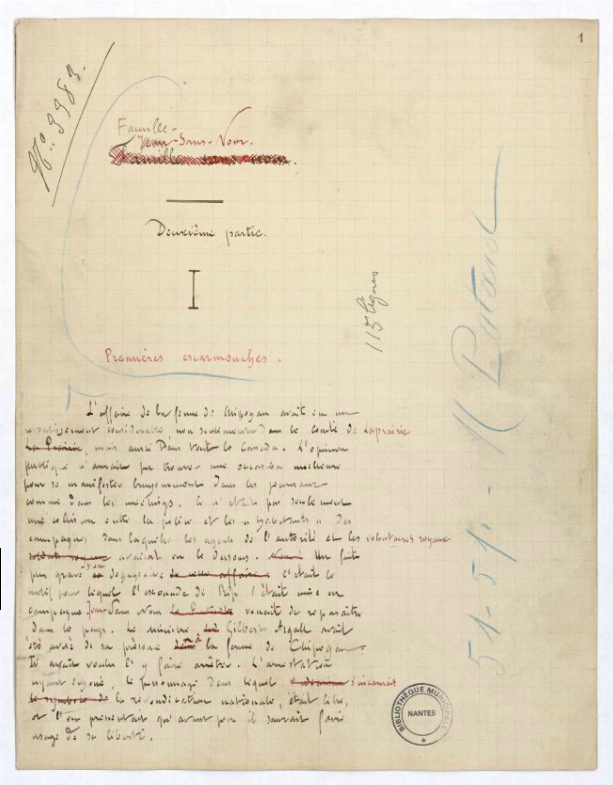 1
N°. 3983.
Famille-
Jean-Sans-Nom.
Famille sans nom.
Deuxième partie.
I
115 lignes
Premières escarmouches.
L'affaire de la ferme de Chipogan avait eu un
retentissement considérable, non seulement dans le comté de Laprairie
La Prairie, mais aussi dans tout le Canada. L'opinion
publique n'aurait pu trouver une occasion meilleure
pour se manifester bruyamment dans les journaux
comme dans les meetings. Ce n'était pas seulement
une collision entre la police et les "habitants" des
campagnes, dans laquelle les agents de l'autorité et les volontaires royaux
soldats royaux avaient eu le dessous. Un fait
plus grave se dégageait de cette affaire : c'était le
motif pour lequel l'escouade de Rip s'était mise en
campagne. Jean-Sans-Nom venait de reparaître
dans le pays. Le ministre Gilbert Argall avait
été avisé de sa présence à la ferme de Chipogan.
Il avait voulu l'y faire arrêter. L'arrestation
ayant échoué, le personnage dans lequel s'incarnait
le symbole de la revendication nationale, était libre,
et l'on pressentait qu'avant peu il saurait faire
usage de sa liberté.
51-51-
BIBLIOTHÈQUE MUNICIPALE
NANTES